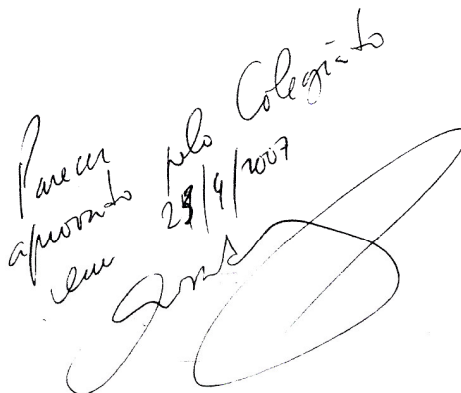 Parecer
aprovado pelo Colegiado
em 25/4/2007